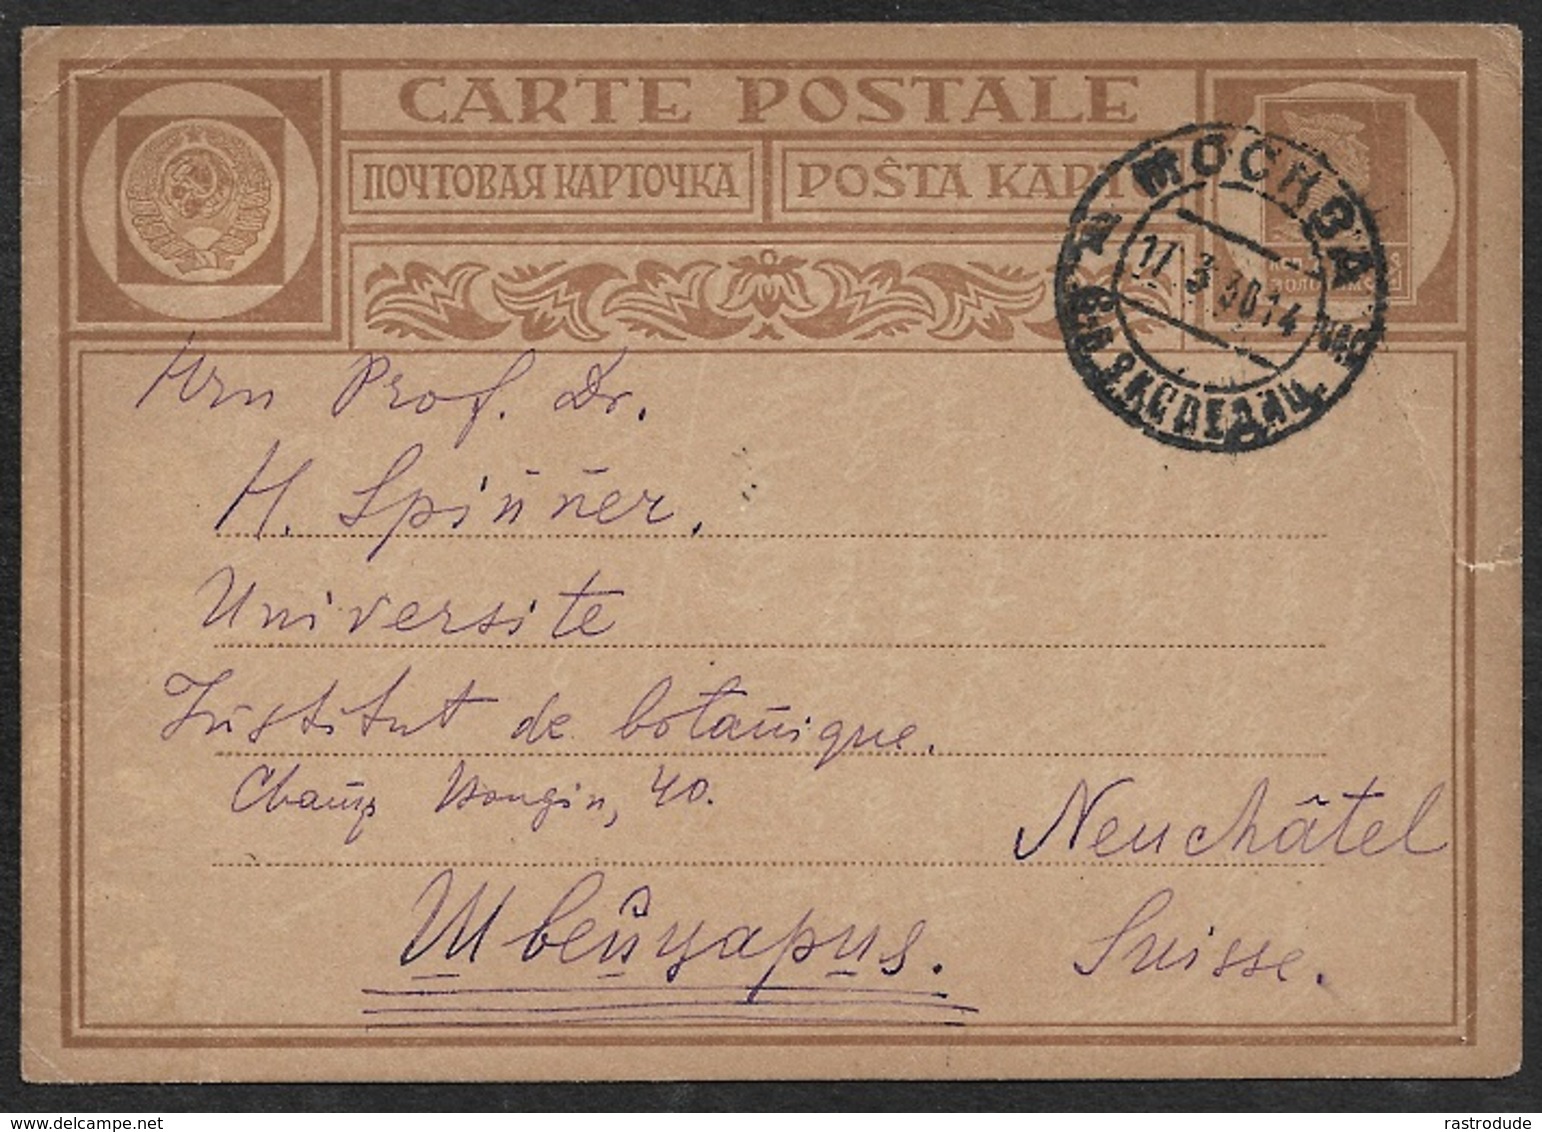 CARTE POSTALE
ПОЧТОВАЯ КАРТОЧКА
POŜTA KARTO
МОСКВА
17.3.30 14
ЭКСПЕДИЦ.
Hrn Prof. Dr.
H. Spinner,
Universite
Institut de botanique.
Champ Bougin, 40.
Neuchâtel
Швейцария.
Suisse.
rastrodude